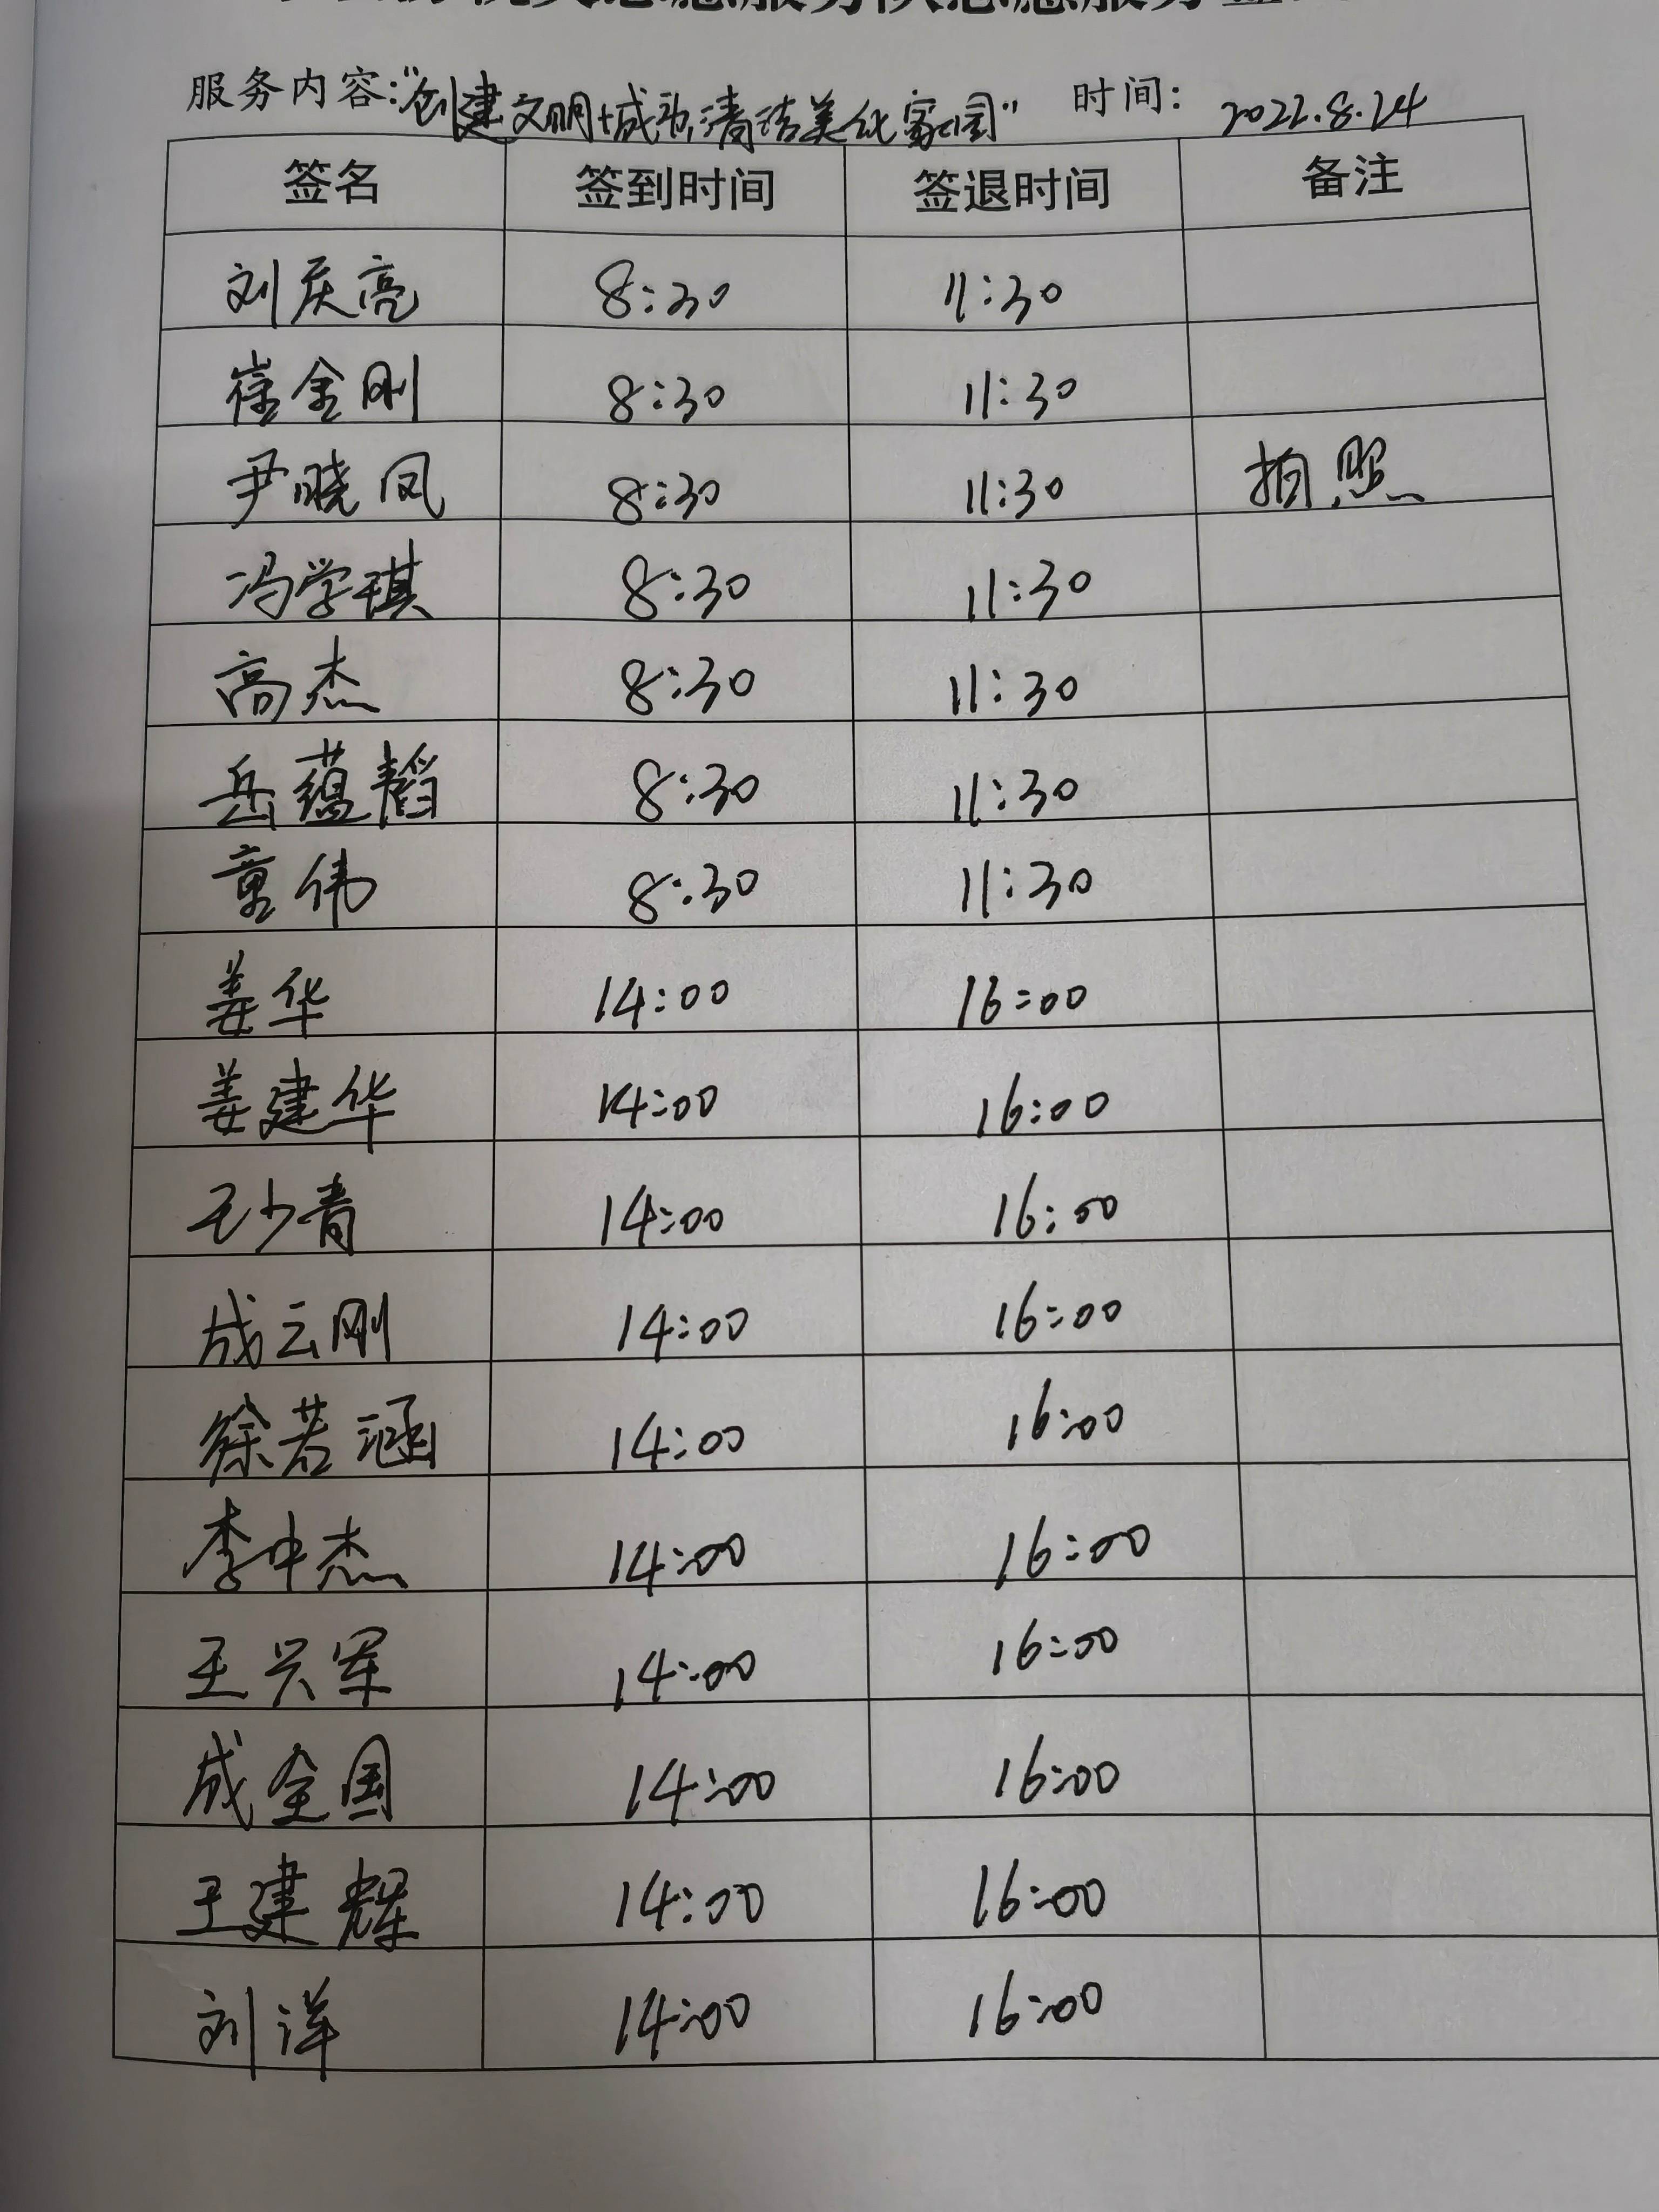 服务队志愿服务签
服务内容:"创建文明城市,清洁美化家园" 时间: 2022.8.24
签名 签到时间 签退时间 备注
刘庆亮 8:30 11:30
崔金刚 8:30 11:30
尹晓凤 8:30 11:30 拍照
冯学琪 8:30 11:30
高杰 8:30 11:30
岳蕴韬 8:30 11:30
童伟 8:30 11:30
姜华 14:00 16:00
姜建华 14:00 16:00
王少青 14:00 16:00
成云刚 14:00 16:00
徐若涵 14:00 16:00
李中杰 14:00 16:00
王兴军 14:00 16:00
成全国 14:00 16:00
王建辉 14:00 16:00
刘洋 14:00 16:00